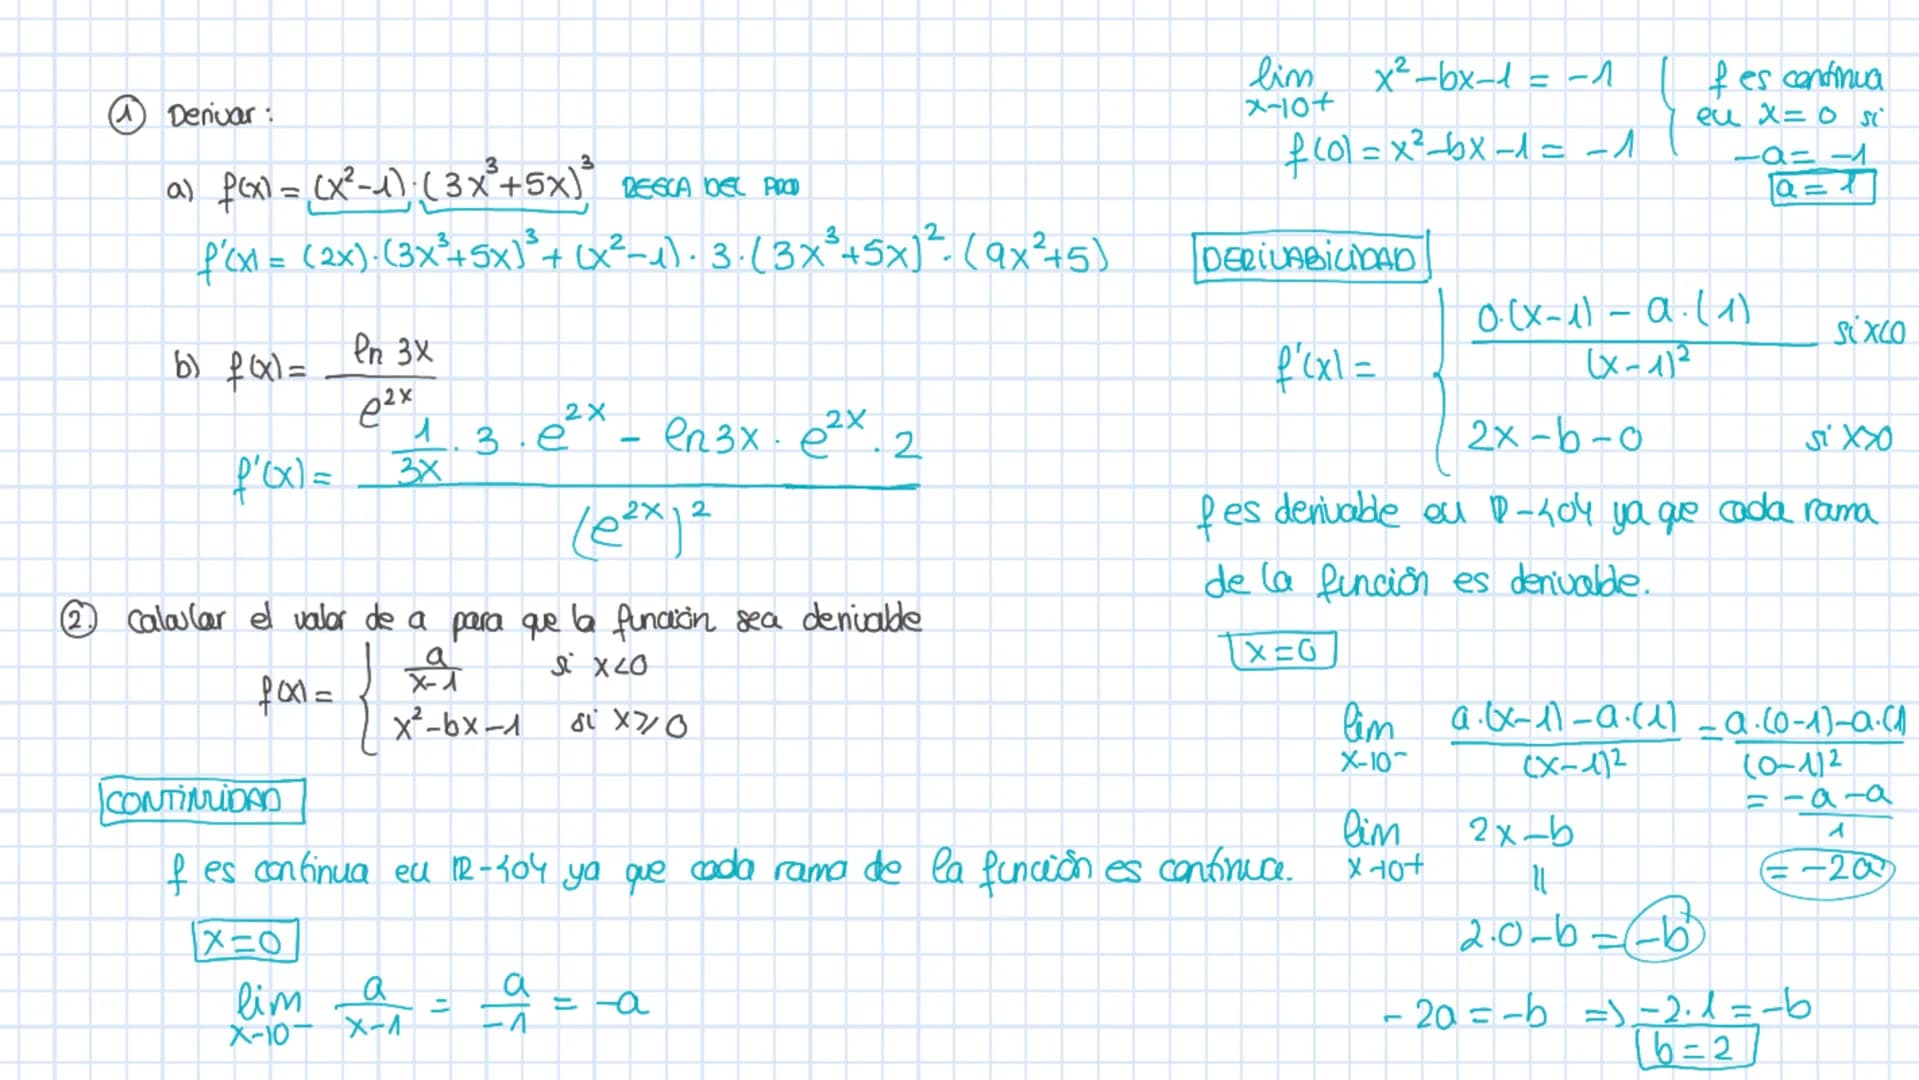 ① Derivar:
a) f(x) = (x²-1)·(3x³+5x)³ REGLA DEL PROD
f'(x) = (2x)·(3x³+5x)³ + (x²-1)·3·(3x³+5x)²·(9x²+5)
b) f(x) = ln 3x / e^{2x}
f'(x) = (1/3x · 3 · e^{2x} - ln3x · e^{2x} · 2) / (e^{2x})²
② Calcular el valor de a para que la función sea derivable
f(x) = { a/(x-1) si x<0
x²-bx-1 si x≥0
CONTINUIDAD
f es continua en R-{0} ya que cada rama de la función es continua.
x=0
lim x→0⁻ a/(x-1) = a/-1 = -a
lim x→0+ x²-bx-1 = -1
f(0) = x²-bx-1 = -1
f es continua
en x=0 si
-a = -1
a = 1
DERIVABILIDAD
f'(x) = { (0·(x-1) - a·(1)) / (x-1)² si x<0
2x-b-0 si x>0
f es derivable en R-{0} ya que cada rama
de la función es derivable.
x=0
lim x→0⁻ (a·(x-1)-a·(1)) / (x-1)² = (a·(0-1)-a·(1)) / (0-1)²
= (-a-a) / 1
= -2a
lim x→0+ 2x-b
||
2·0-b = -b
-2a = -b => -2·1 = -b
b = 2